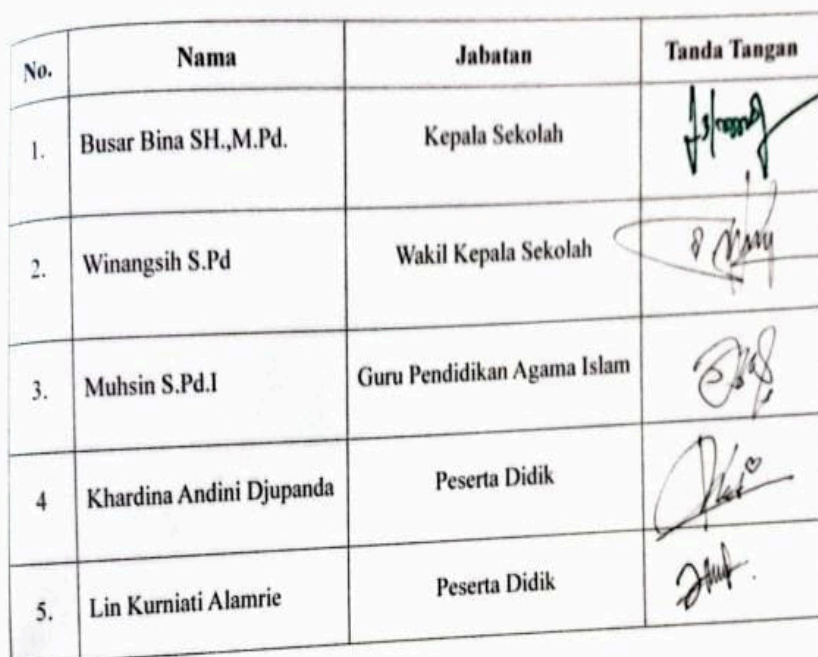 No. Nama Jabatan Tanda Tangan
1. Busar Bina SH.,M.Pd. Kepala Sekolah
2. Winangsih S.Pd Wakil Kepala Sekolah
3. Muhsin S.Pd.I Guru Pendidikan Agama Islam
4 Khardina Andini Djupanda Peserta Didik
5. Lin Kurniati Alamrie Peserta Didik